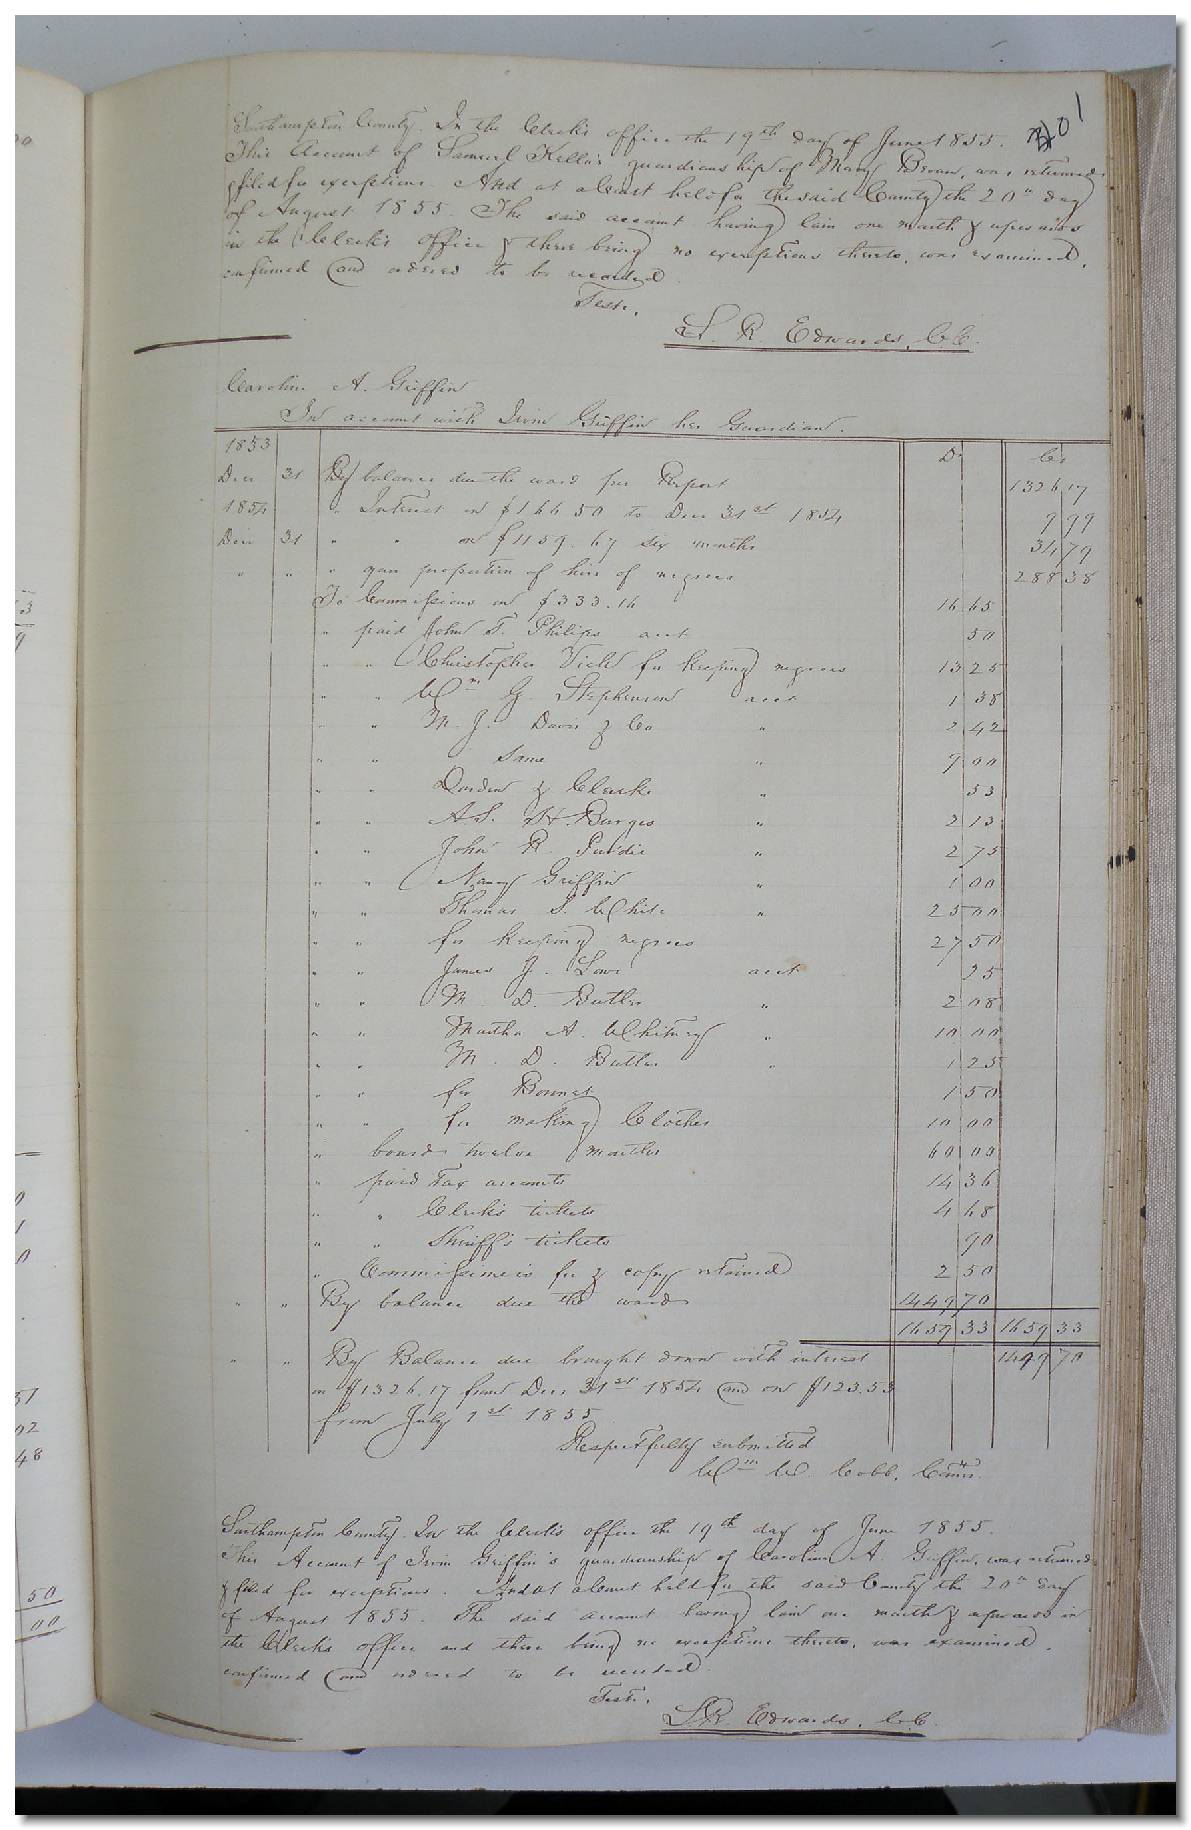 301
Southampton County. In the Clerk's office the 19th day of June 1855.
This Account of Samuel Kello's guardianship of Mary Brown, was returned
& filed for exceptions. And at a Court held for the said County the 20th day
of August 1855. The said account having lain one month & upwards
in the Clerk's office & there being no exceptions thereto, was examined,
confirmed and ordered to be recorded.
Teste,
L. R. Edwards, C.C.
Caroline A. Griffin
In account with Irvin Griffin her Guardian.
1853 Dr Cr
Decr 31 By balance due the ward per Report 1326 17
1854 " Interest on $166.50 to Decr 31st 1854 9 99
Decr 31 " " on $1159.67 six months 34 79
" " " your proportion of hire of negroes 288 38
To Commissions on $333.16 16 65
" paid John T. Philips acct 50
" " Christopher Vick for keeping negroes 13 25
" " Wm G. Stephenson acct 1 38
" " M. J. Davis & Co " 2 42
" " Same " 9 00
" " Darden & Clarke " 53
" " A. S. H. Burges " 2 13
" " John R. Purdie " 2 75
" " Nancy Griffin " 1 00
" " Thomas S. White " 25 00
" " for keeping negroes 27 50
" " James J. acct 25
" " M. D. Butler " 2 08
" " Martha A. Whitney " 10 00
" " M. D. Butler " 1 25
" " for Bonnet 1 50
" " for making Clothes 10 00
" board twelve months 60 00
" paid Tax accounts 14 36
" " Clerk's tickets 4 68
" " Sheriff's tickets 90
" Commissioners fee & copy retained 2 50
" " By balance due the ward 1449 70
1659 33 1659 33
" " By Balance due brought down with interest 1449 70
on $1326.17 from Decr 31st 1854 and on $123.53
from July 1st 1855
Respectfully submitted
Wm W. Cobb, Comr.
Southampton County. In the Clerk's office the 19th day of June 1855.
This Account of Irvin Griffin's guardianship of Caroline A. Griffin, was returned
& filed for exceptions. And at a Court held for the said County the 20th day
of August 1855. The said account having lain one month & upwards in
the Clerk's office and there being no exceptions thereto, was examined,
confirmed and ordered to be recorded.
Teste,
L R Edwards, C.C.